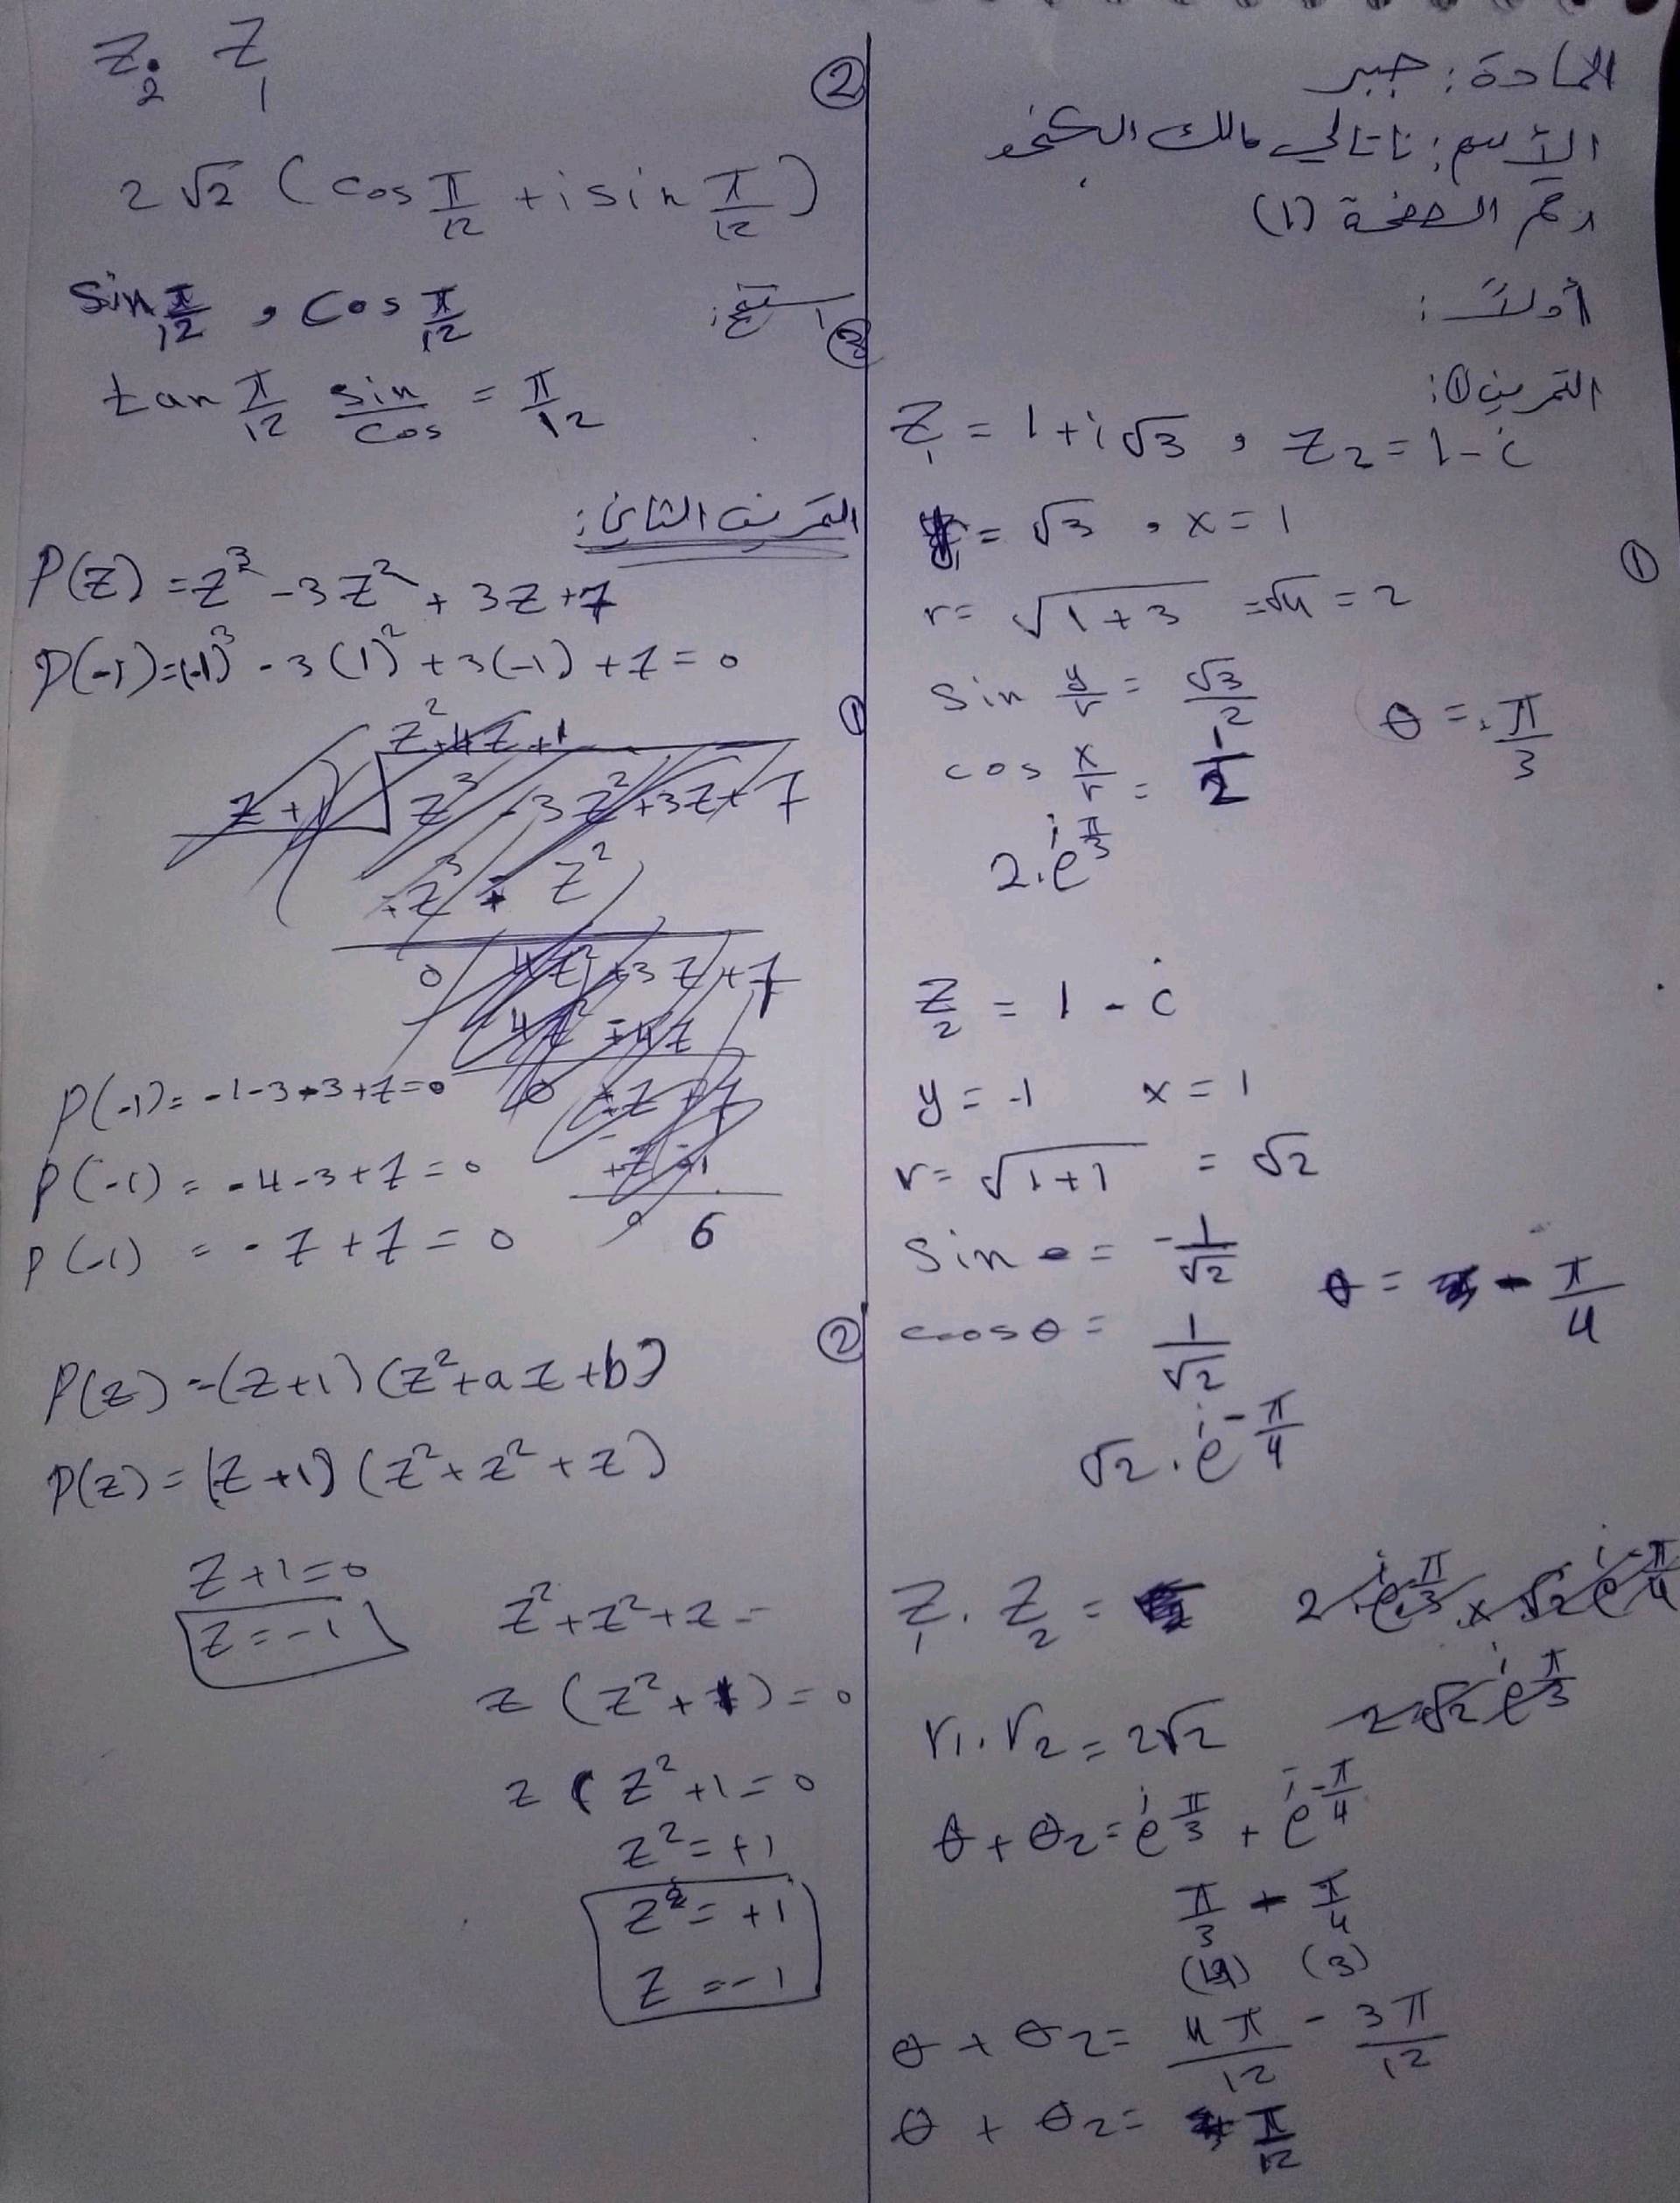 المادة: جبر
الاسم: ناتالي مالك
رقم الصفحة (1)
أولاً:
التمرين ①:
Z₁ = 1+i√3 , Z₂ = 1-i
①
y = √3 , x = 1
r = √(1+3) = √4 = 2
sin y/r = √3/2
cos x/r = 1/2
θ = π/3
2.e^(iπ/3)
Z₂ = 1 - i
y = -1 x = 1
r = √(1+1) = √2
sin θ = -1/√2
cos θ = 1/√2
θ = -π/4
√2.e^(i-π/4)
Z₁.Z₂ = 2.e^(iπ/3) × √2 e^(i-π/4)
r₁.r₂ = 2√2 2√2 e^(iπ/3)
θ + θ₂ = e^(iπ/3) + e^(i-π/4)
π/3 - π/4
(3)
θ + θ₂ = 4π/12 - 3π/12
θ + θ₂ = π/12
Z₂ Z₁
②
2√2 (cos π/12 + i sin π/12)
استنتج:
③
sin π/12 , cos π/12
tan π/12 sin/cos = π/12
التمرين الثاني:
P(Z) = Z³ - 3Z² + 3Z + 7
P(-1) = (-1)³ - 3(1)² + 3(-1) + 7 = 0
①
Z² + 4Z + 1
Z + 1 Z³ - 3Z² + 3Z + 7
-Z³ + Z²
0 4Z² + 3Z + 7
4Z² - 4Z
0 -Z + 7
+Z -1
0 6
P(-1) = -1-3-3+7=0
P(-1) = -4-3+7=0
P(-1) = -7+7=0
②
P(z) = (z+1)(z²+az+b)
P(z) = (z+1)(z²+z²+z)
Z+1=0
Z=-1
z²+z²+z=
z(z²+1)=0
z(z²+1=0
z²=+1
z²=+1
z=-1